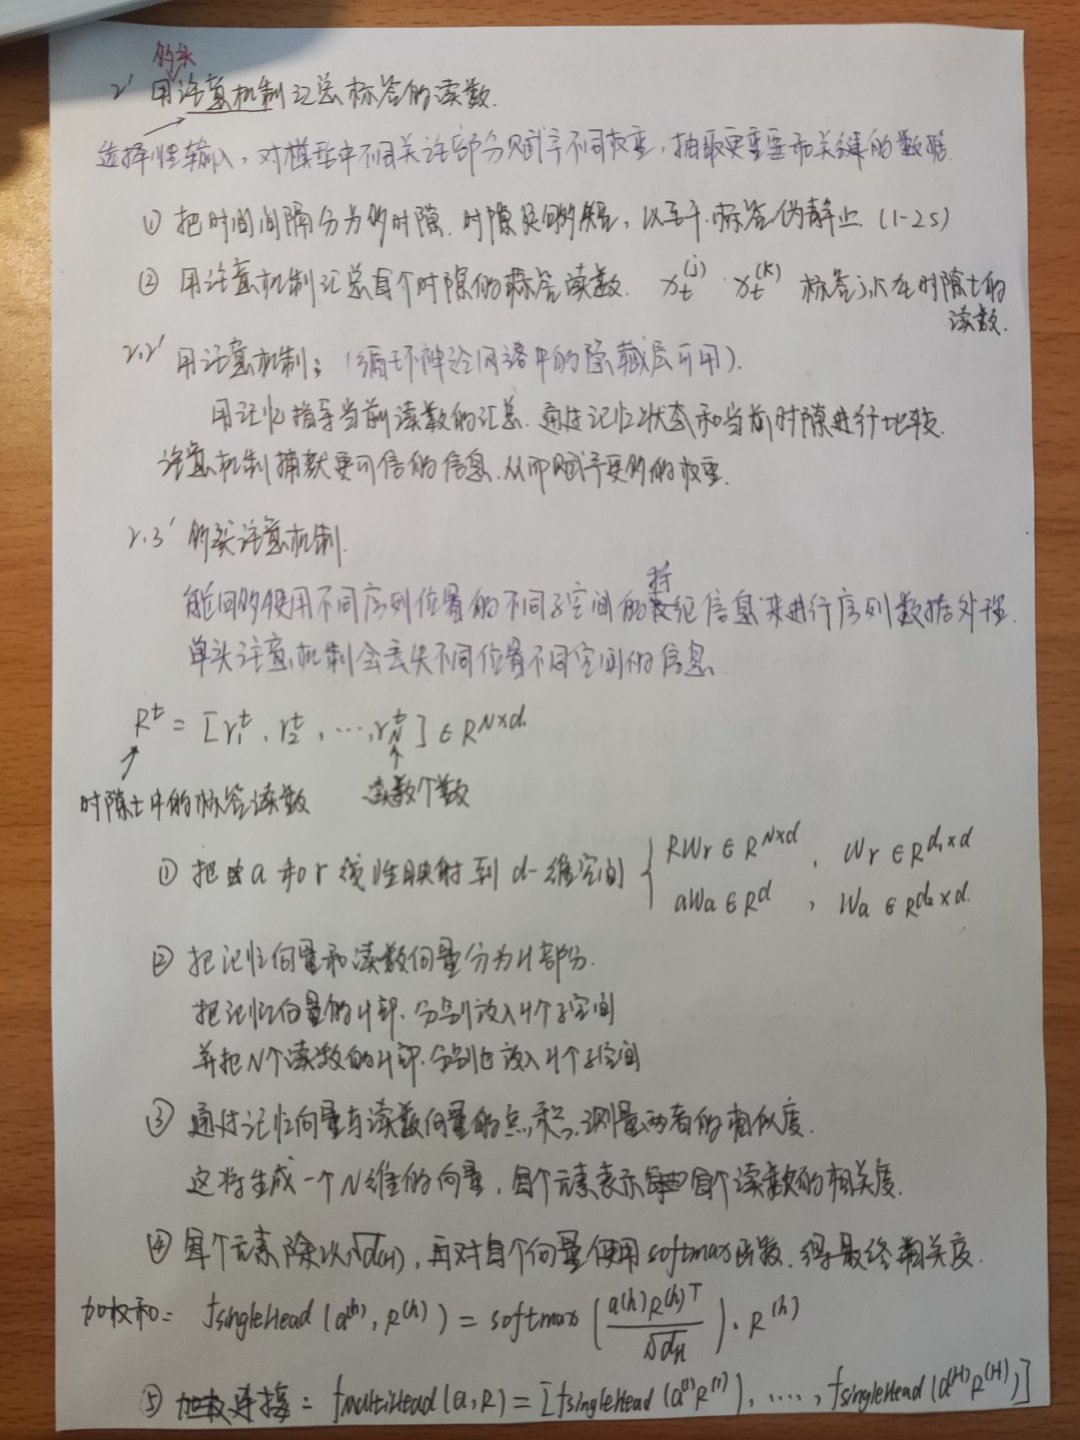 多头
2' 用注意机制汇总标签的读数.
选择性输入, 对模型中不同关注部分赋予不同权重, 抽取更重要和关键的数据.
① 把时间间隔分为多时隙. 时隙足够短, 以至于标签仿静止. (1-2s)
② 用注意机制汇总每个时隙的标签读数. x_t^(j) x_t^(k) 标签j,k在时隙t的
读数.
2.2' 用注意机制: (循环神经网络中的隐藏层可用).
用记忆指导当前读数的汇总. 通过记忆状态和当前时隙进行比较.
注意机制捕获更可信的信息. 从而赋予更多的权重.
2.3' 多头注意机制.
能同时使用不同序列位置的不同子空间的特征信息来进行序列数据处理.
单头注意机制会丢失不同位置不同空间的信息.
R^t = [r_1^t, r_2^t, ..., r_N^t] ∈ R^{N×d}
时隙t中的标签读数 读数个数
① 把a和r线性映射到d-维空间 { RWr ∈ R^{N×d}, Wr ∈ R^{d1×d}
aWa ∈ R^d, Wa ∈ R^{d2×d}.
② 把记忆向量和读数向量分为H部分.
把记忆向量的H部. 分别放入H个子空间
并把N个读数的H部. 分别也放入H个子空间
③ 通过记忆向量与读数向量的点乘, 测量两者的相似度.
这将生成一个N维的向量, 每个元素表示每个读数的相关度.
④ 每个元素除以√d(H), 再对每个向量使用softmax函数. 得最终相关度.
加权和: fsingleHead (a^(h), R^(h)) = softmax (a(h)R(h)^T / √dH) · R^(h)
⑤ 连接: fmultiHead (a,R) = [fsingleHead (a^(1) R^(1)), ...., fsingleHead (a^(H) R^(H))]